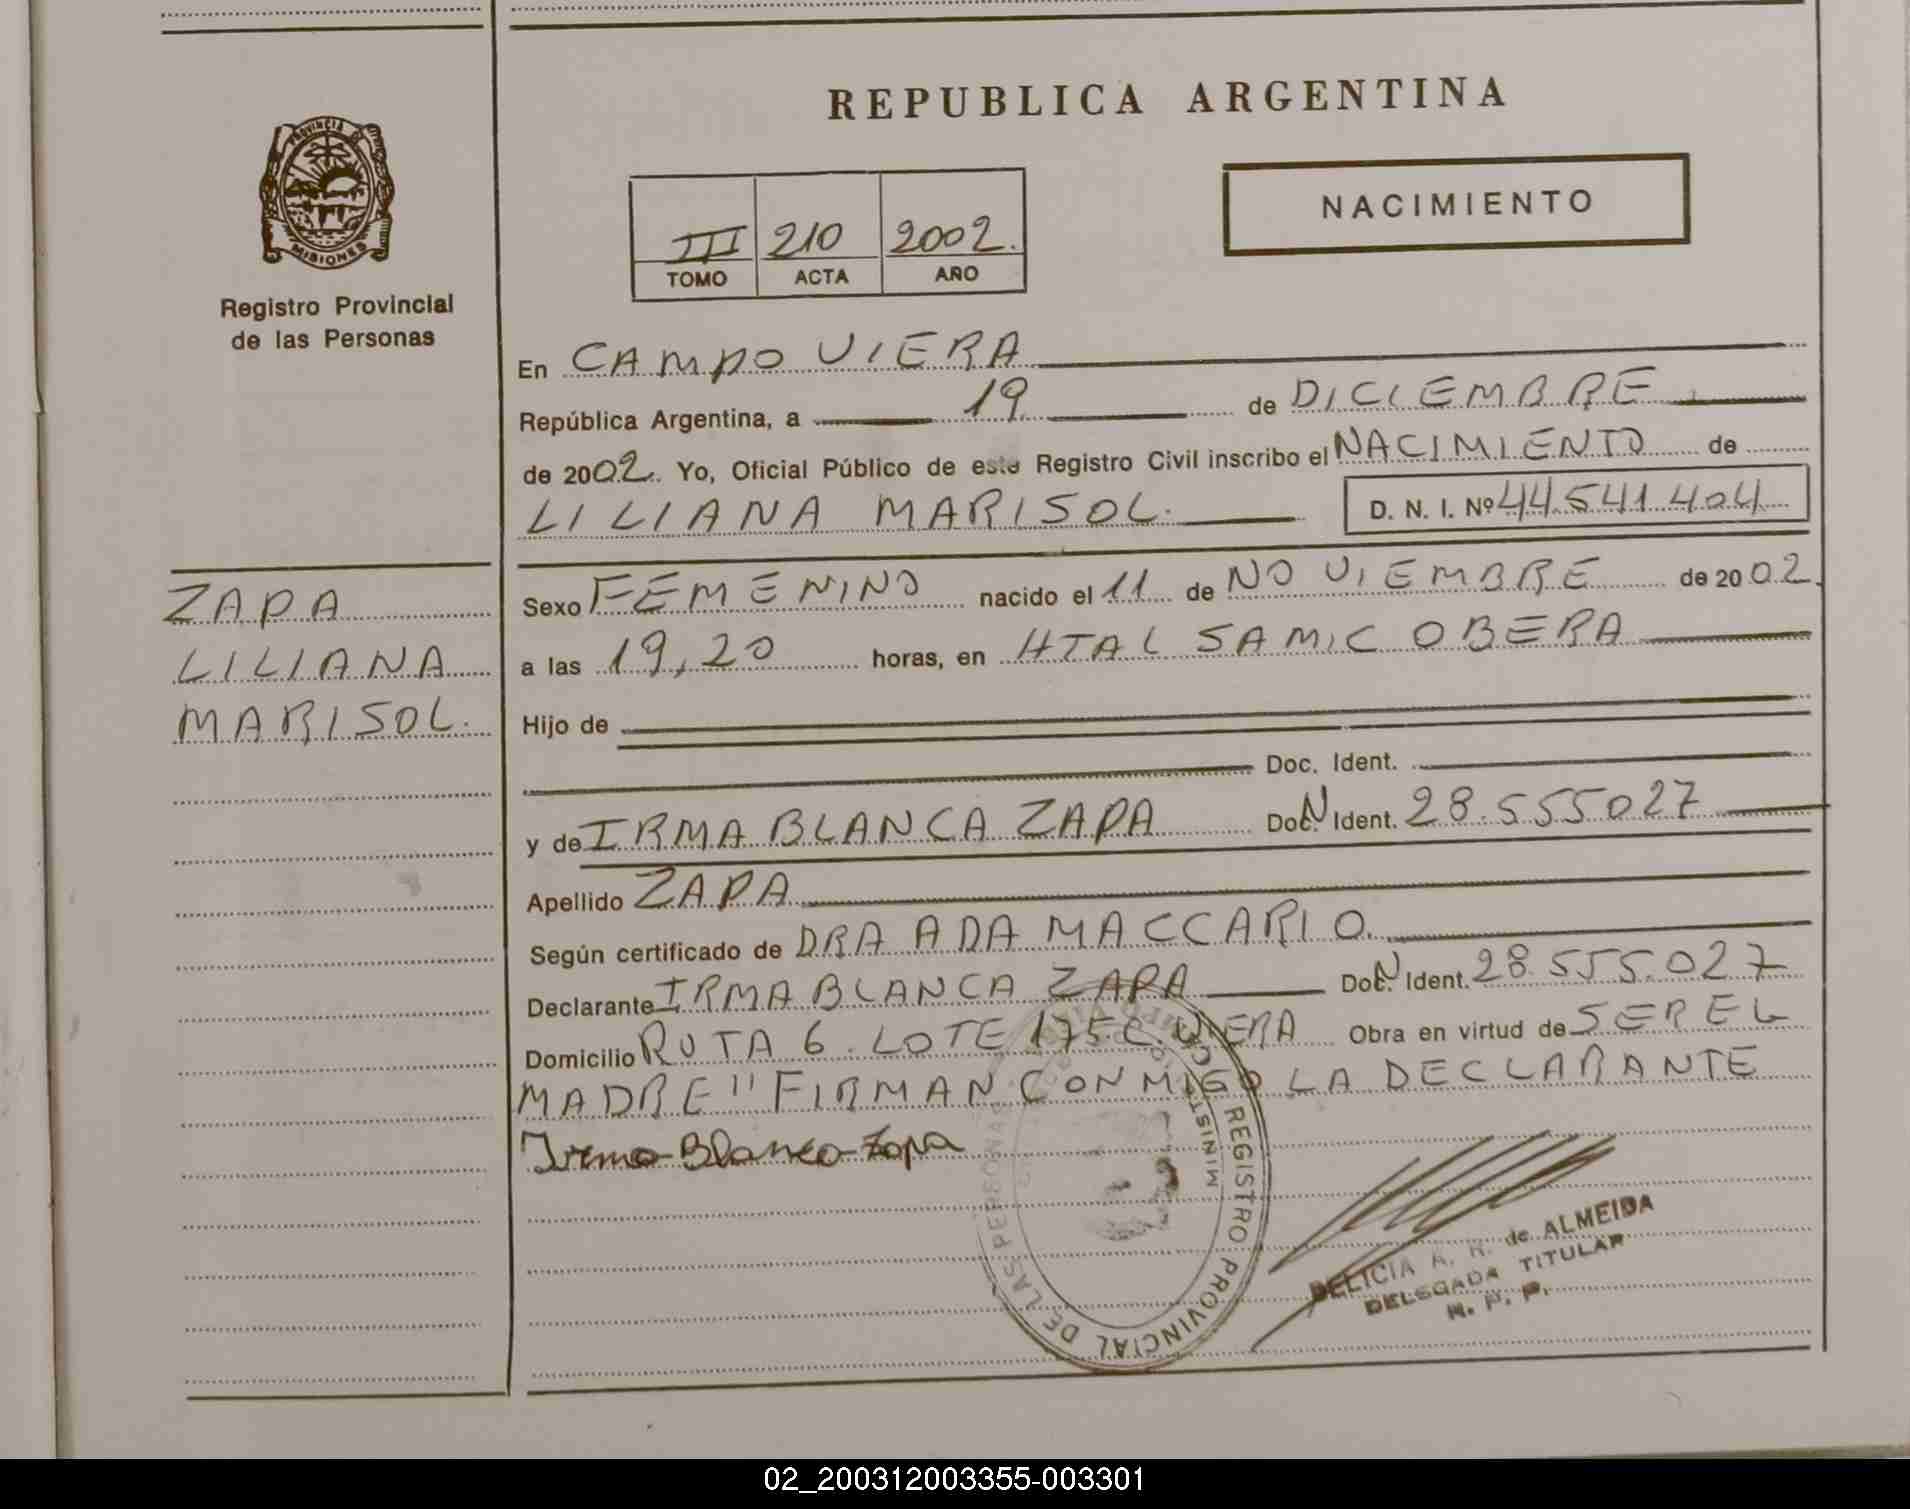 REPUBLICA ARGENTINA
PROVINCIA DE
MISIONES
Registro Provincial
de las Personas
III 210 2002.
TOMO ACTA AÑO
NACIMIENTO
En CAMPO VIERA
República Argentina, a 19 de DICIEMBRE
de 2002. Yo, Oficial Público de este Registro Civil inscribo el NACIMIENTO de
LILIANA MARISOL. D. N. I. Nº 44.541.404
ZAPA
LILIANA
MARISOL.
Sexo FEMENINO nacido el 11 de NOVIEMBRE de 2002.
a las 19,20 horas, en HTAL SAMIC OBERA
Hijo de
Doc. Ident.
y de IRMA BLANCA ZAPA Doc. N Ident. 28.555027
Apellido ZAPA
Según certificado de DRA ADA MACCARIO.
Declarante IRMA BLANCA ZAPA Doc. N Ident. 28.555.027
Domicilio RUTA 6. LOTE 175 C. VIERA Obra en virtud de SER EL
MADRE" FIRMAN CONMIGO LA DECLARANTE
Irma Blanca Zapa
REGISTRO PROVINCIAL DE LAS PERSONAS
DELICIA A. R. de ALMEIDA
DELEGADA TITULAR
R. P. P.
02_200312003355-003301